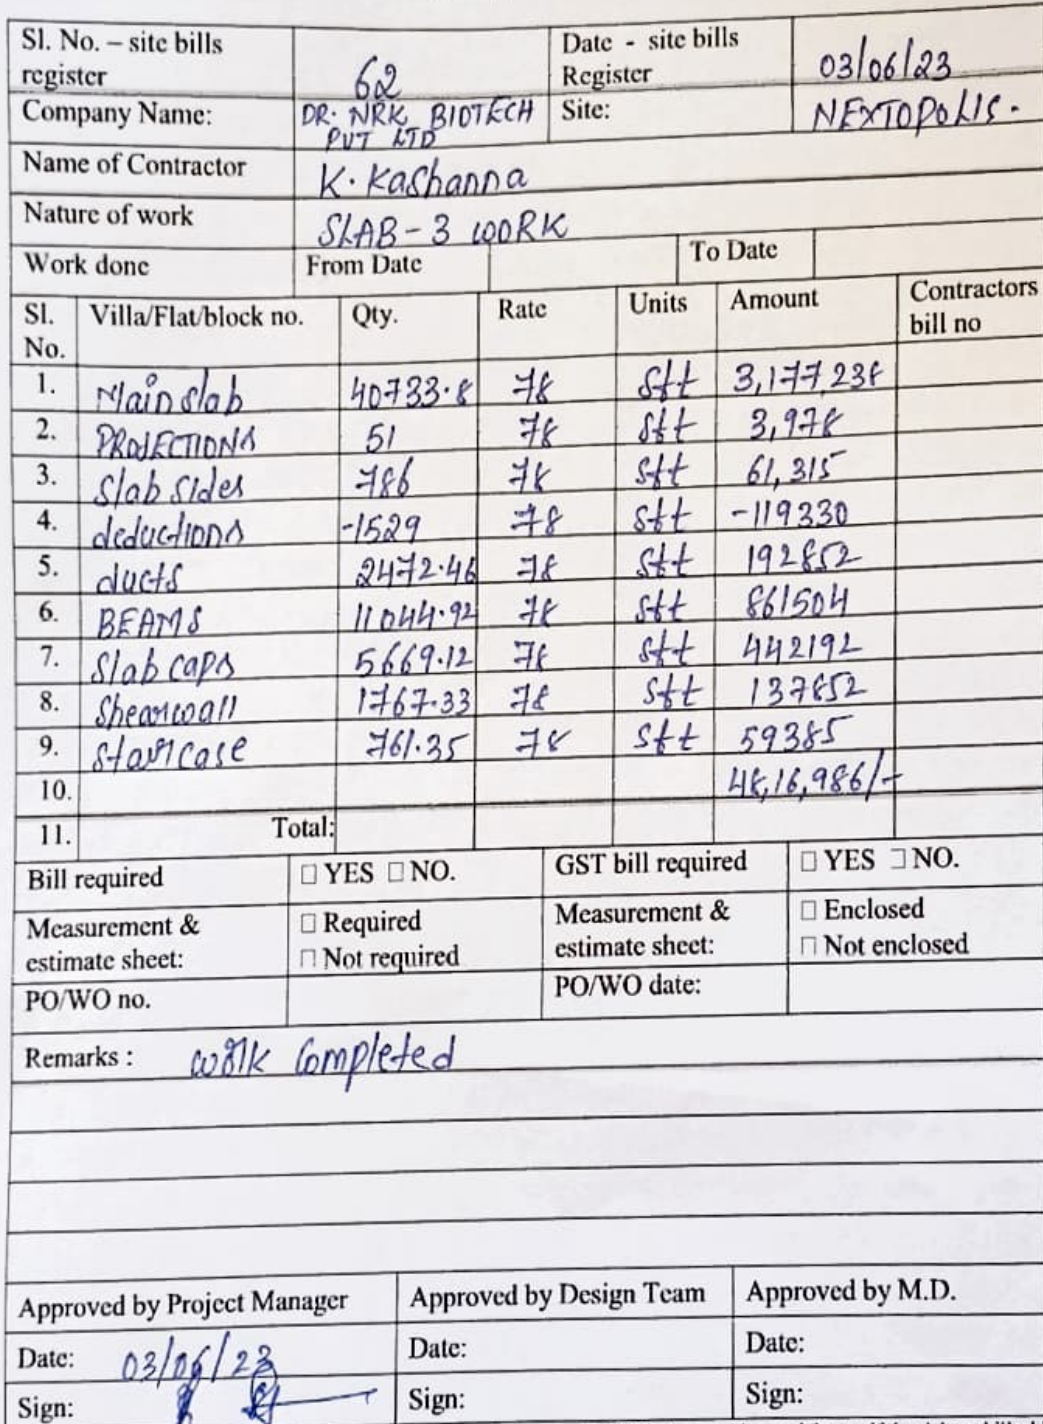 Sl. No. – site bills register 62 Date - site bills Register 03/06/23
Company Name: DR. NRK BIOTECH PVT LTD Site: NEXTOPOLIS.
Name of Contractor K. Kashanna
Nature of work SLAB-3 WORK
Work done From Date To Date
Sl. No. Villa/Flat/block no. Qty. Rate Units Amount Contractors bill no
1. Main slab 40733.8 78 Sft 3,177,238
2. PROJECTIONS 51 78 Sft 3,978
3. Slab sides 786 78 Sft 61,315
4. deductions -1529 78 Sft -119330
5. ducts 2472.46 78 Sft 192852
6. BEAMS 11044.92 78 Sft 861504
7. Slab caps 5669.12 78 Sft 442192
8. Shearwall 1767.33 78 Sft 137852
9. Staircase 761.35 78 Sft 59385
10. 48,16,986/-
11. Total:
Bill required □ YES □ NO. GST bill required □ YES □ NO.
Measurement & estimate sheet: □ Required □ Not required Measurement & estimate sheet: □ Enclosed □ Not enclosed
PO/WO no. PO/WO date:
Remarks : work Completed
Approved by Project Manager Approved by Design Team Approved by M.D.
Date: 03/06/23 Date: Date:
Sign: Sign: Sign: